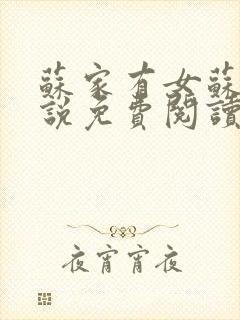 蘇家有女蘇
說免費閱讀
夜宵宵夜